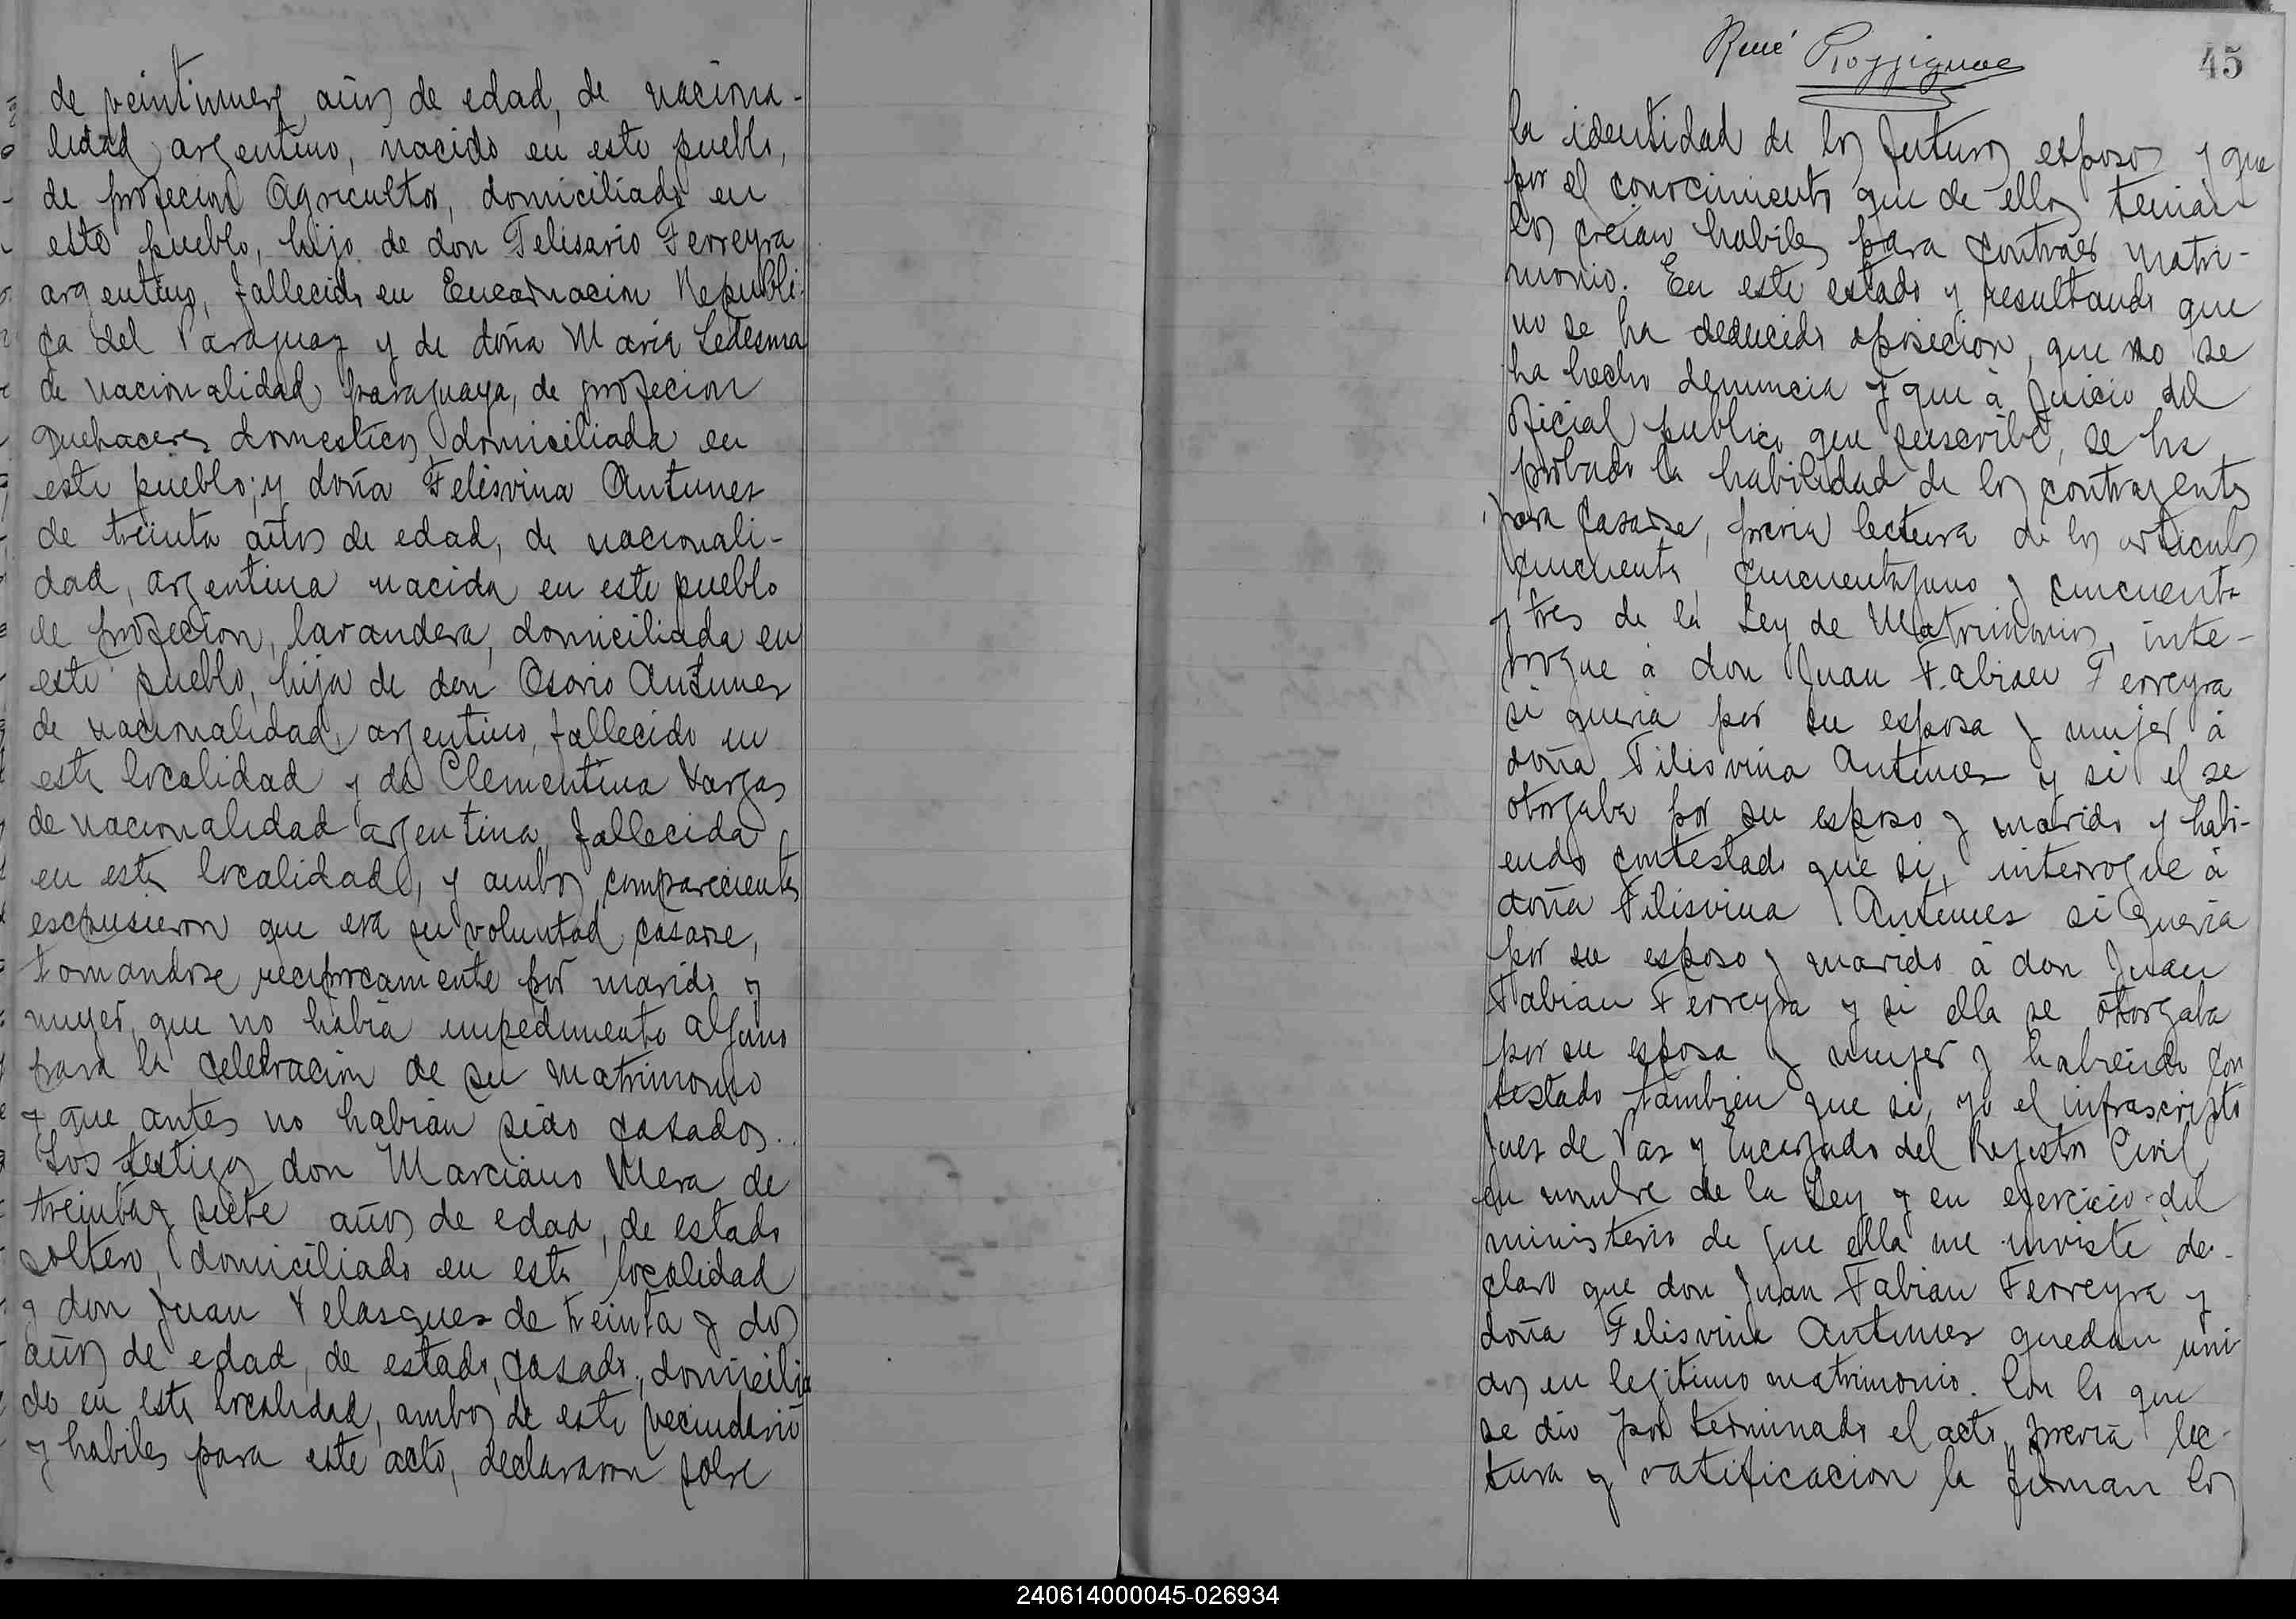 de veintinueve años de edad, de naciona-
lidad argentino, nacido en este pueblo,
de profecion Agricultor, domiciliado en
este pueblo, hijo de don Felisario Ferreyra
argentino, fallecido en Encarnacion Republi-
ca del Paraguay y de doña Maria Ledesma
de nacionalidad paraguaya, de profecion
quehaceres domesticos domiciliada en
este pueblo; y doña Felisvina Antunes
de treinta años de edad, de nacionali-
dad, argentina nacida en este pueblo
de profecion, lavandera, domiciliada en
este pueblo, hija de don Osorio Antunes
de nacionalidad argentino, fallecido en
esta localidad y de Clementina Vargas
de nacionalidad argentina, fallecida
en esta localidad, y ambos comparecientes
escpusieron que era su voluntad casarse,
tomandose reciprocamente por marido y
mujer, que no habia impedimento alguno
para la celebracion de su matrimonio
y que antes no habian sido casados..
Los testigos don Marciano Mera de
treinta y siete años de edad, de estado
soltero, domiciliado en esta localidad
y don Juan Velasques de treinta y dos
años de edad, de estado, casado, domicilia
do en esta localidad, ambos de este vecindario
y habiles para este acto, declararon sobre
René
45
la identidad de los futuros esposos y que
por el conocimiento que de ellos tenian
los creian habiles para contraer matri-
monio. En este estado y resultando que
no se ha deducido oposicion, que no se
ha hecho denuncia y que á juicio del
oficial publico que suscribe, se ha
probado la habilidad de los contrayentes
para casarse, previa lectura de los articulos
cincuenta, cincuenta y uno y cincuenta
y tres de la Ley de Matrimonios, inte-
rrogue á don Juan Fabian Ferreyra
si queria por su esposa y mujer á
doña Filisvina Antunes y si el se
otorgaba por su esposo y marido y habi-
endo contestado que si, interrogue á
doña Filisvina Antunes si queria
por su esposo y marido á don Juan
Fabian Ferreyra y si ella se otorgaba
por su esposa y mujer y habiendo con
testado tambien que si, yo el infrascripto
Juez de Paz y Encargado del Registro Civil
en nombre de la Ley y en ejercicio del
ministerio de que ella me inviste de-
claro que don Juan Fabian Ferreyra y
doña Felisvina Antunes quedan uni
dos en legitimo matrimonio. Con lo que
se dio por terminado el acto, previa lec-
tura y ratificacion la firman los
240614000045-026934